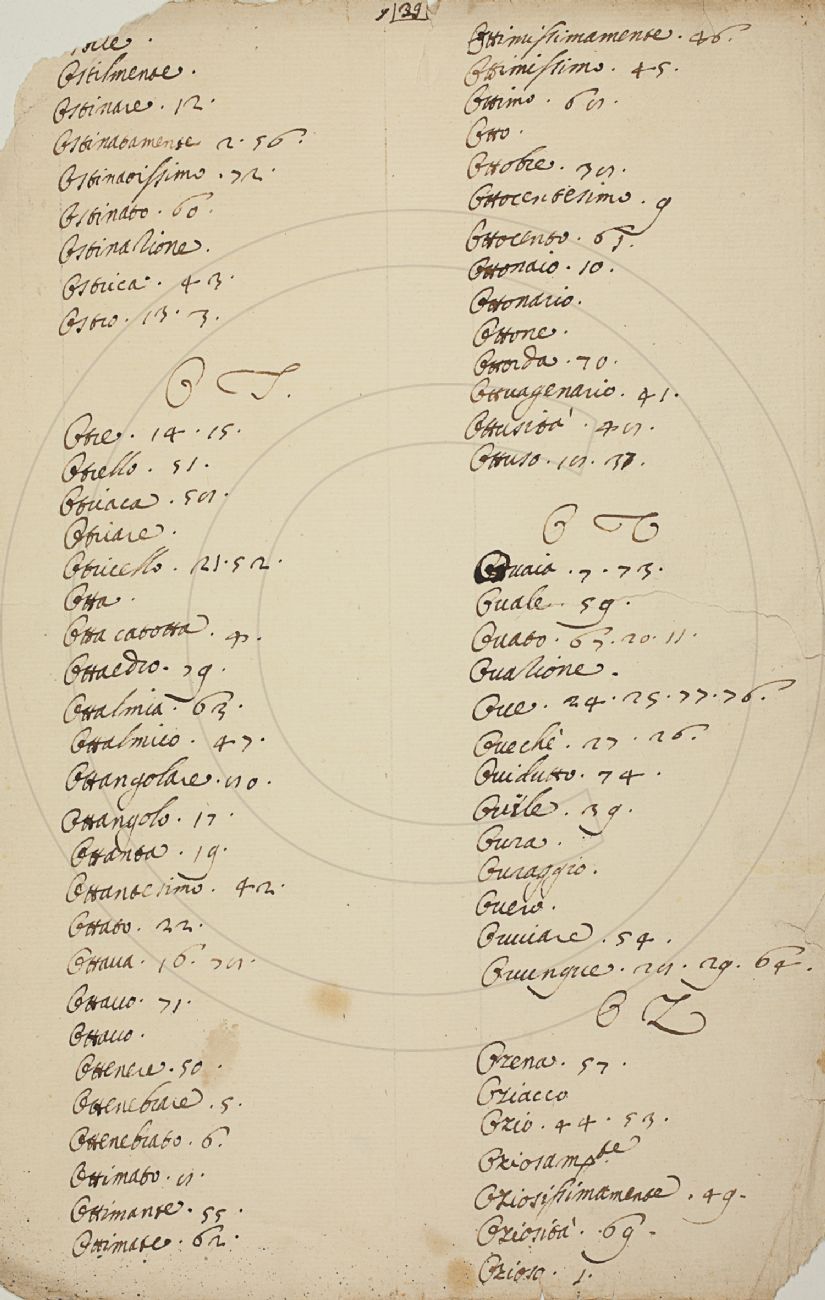 39
Ostilmente .
Ostinare . 12 .
Ostinatamente 2 . 56 .
Ostinatissimo . 72 .
Ostinato . 60 .
Ostinazione .
Ostrica . 43 .
Ostro . 13 . 3 .
O T .
Otre . 14 . 15 .
Otrello . 51 .
Otriaca . 58 .
Otriare .
Otricello . 21 . 52 .
Otta .
Otta catotta . 4 .
Ottaedro . 79 .
Ottalmia . 63 .
Ottalmico . 47 .
Ottangolare . 80 .
Ottangolo . 17 .
Ottanta . 19 .
Ottantesimo . 42 .
Ottato . 22 .
Ottaua . 16 . 78 .
Ottauo . 71 .
Ottauo .
Ottenere . 50 .
Ottenebrare . 5 .
Ottenebrato . 6 .
Ottimato . 8 .
Ottimante . 55 .
Ottimate . 62 .
Ottimissimamente . 46 .
Ottimissimo . 45 .
Ottimo . 68 .
Otto .
Ottobre . 78 .
Ottocentesimo . 9
Ottocento . 61 .
Ottonaio . 10 .
Ottonario .
Ottone .
Ottorda . 70 .
Ottuagenario . 41 .
Ottusità . 48 .
Ottuso . 18 . 37 .
O V
Ouaia . 7 . 73 .
Ouale . 59 .
Ouato . 67 . 20 . 11 .
Ouazione .
Oue . 24 . 25 . 77 . 76 .
Oueche . 27 . 26 .
Ouidutto . 74 .
Ouile . 39 .
Oura .
Ouraggio .
Ouero .
Ouuiare . 54 .
Ouunque . 28 . 29 . 64 .
O Z
Ozena . 57 .
Oziacco
Ozio . 44 . 53 .
Oziosamte
Oziosissimamente . 49 .
Oziosità . 69 .
Ozioso . 1 .